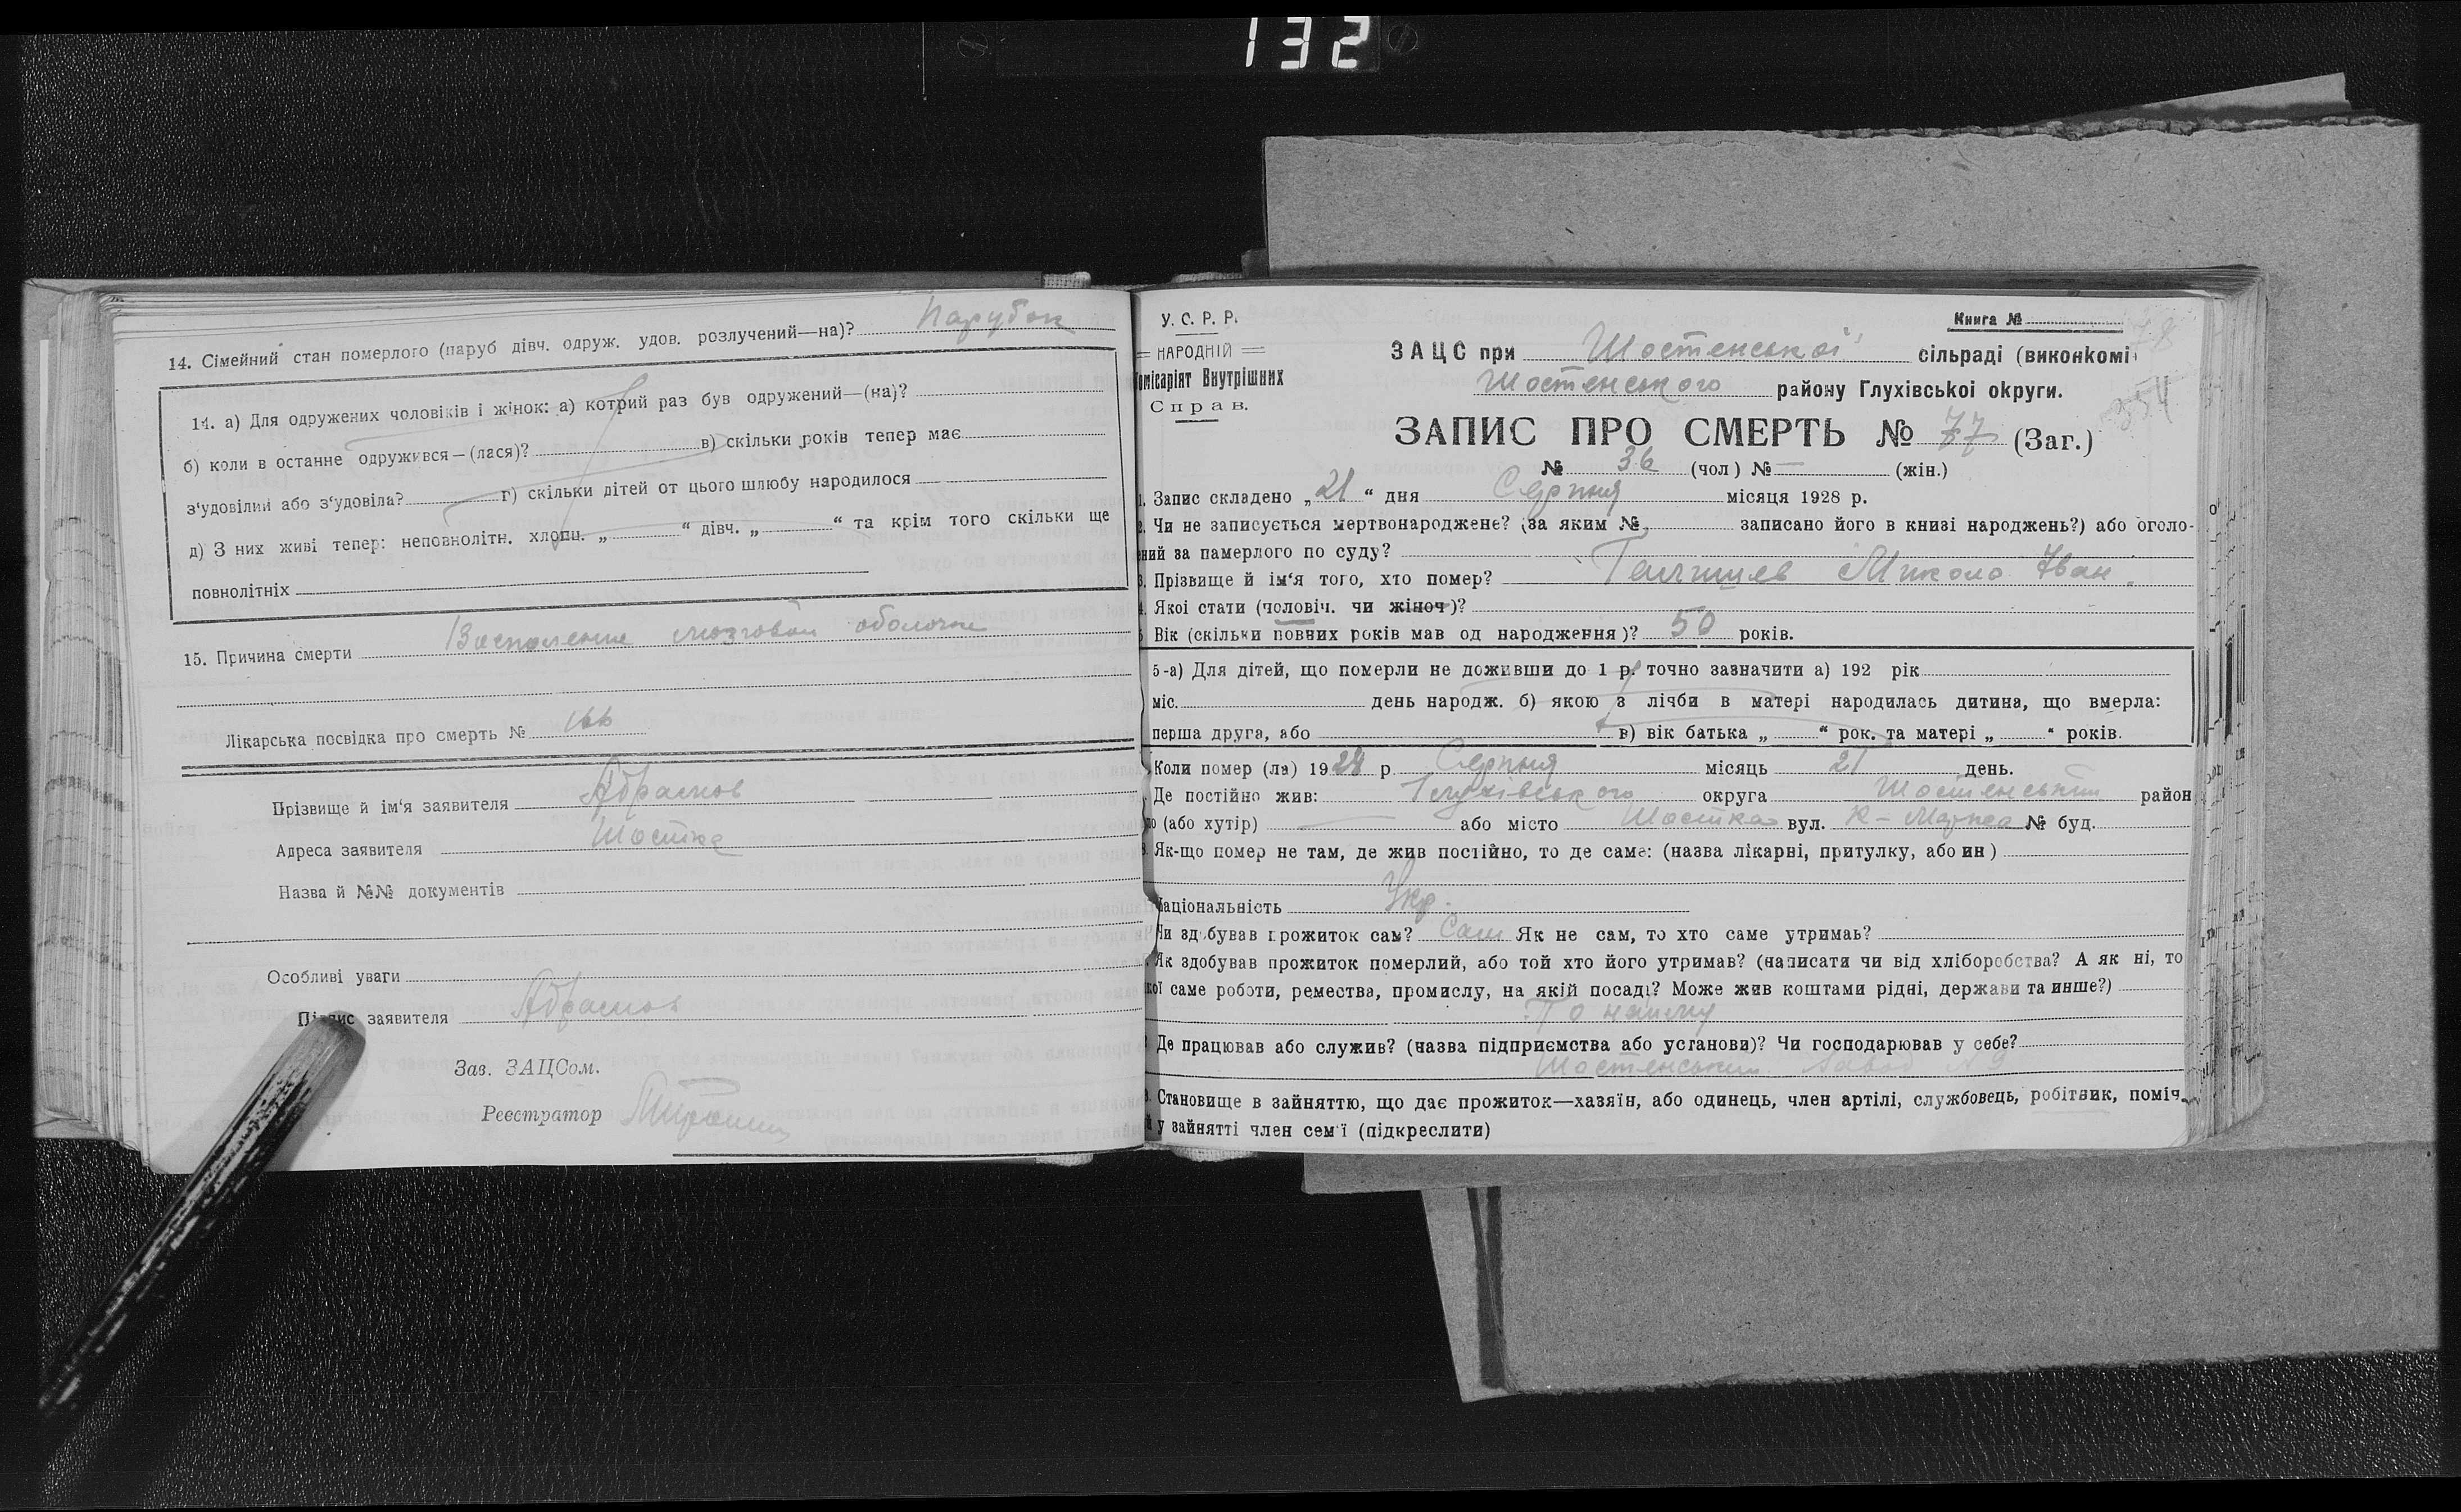 132
14. Сімейний стан померлого (паруб дівч. одруж. удов. розлучений—на)? Парубок
14. а) Для одружених чоловіків і жінок: а) котрий раз був одружений—(на)?
б) коли в останне одружився—(лася)? в) скільки років тепер має
з'удовілий або з'удовіла? г) скільки дітей от цього шлюбу народилося
д) З них живі тепер: неповнолітн. хлопц. „ “ дівч. „ “ та крім того скільки ще
повнолітніх
15. Причина смерти Воспаление мозговой оболочки
Лікарська посвідка про смерть № 166
Прізвище й ім'я заявителя Абрамов
Адреса заявителя Шостка
Назва й №№ документів
Особливі уваги
Підпис заявителя Абрамов
Зав. ЗАЦСом.
Реєстратор
У. С. Р. Р.
НАРОДНІЙ
Комісаріят Внутрішних
Справ.
Книга №
ЗАЦС при Шостенської сільраді (виконкомі
Шостенського району Глухівської округи.
354
ЗАПИС ПРО СМЕРТЬ № 77 (Заг.)
№ 36 (чол) № — (жін.)
1. Запис складено „21“ дня Серпня місяця 1928 р.
2. Чи не записується мертвонароджене? (за яким № записано його в книзі народжень?) або оголо-
ений за памерлого по суду?
3. Прізвище й ім'я того, хто помер? Микола Іван.
4. Якоі стати (чоловіч. чи жіноч)?
5 Вік (скільки повних років мав од народження)? 50 років.
5-а) Для дітей, що померли не доживши до 1 р. точно зазначити а) 192 рік
міс. день народж. б) якою з лічби в матері народилась дитина, що вмерла:
перша друга, або в) вік батька „ “ рок. та матері „ “ років.
Коли помер (ла) 1928 р. Серпня місяць 21 день.
Де постійно жив: Глухівського округа Шостенський район
ло (або хутір) — або місто Шостка вул. К-Маркса № буд.
8. Як-що помер не там, де жив постійно, то де саме: (назва лікарні, притулку, або ин)
Національність Укр.
Чи здобував прожиток сам? Сам Як не сам, то хто саме утримав?
Як здобував прожиток померлий, або той хто його утримав? (написати чи від хліборобства? А як ні, то
якої саме роботи, ремества, промислу, на якій посаді? Може жив коштами рідні, держави та инше?)
По найму
Де працював або служив? (назва підприємства або установи)? Чи господарював у себе?
Шостенський завод № 9
Становище в зайняттю, що дає прожиток—хазяїн, або одинець, член артілі, службовець, робітник, поміч.
у зайнятті член сем'ї (підкреслити)